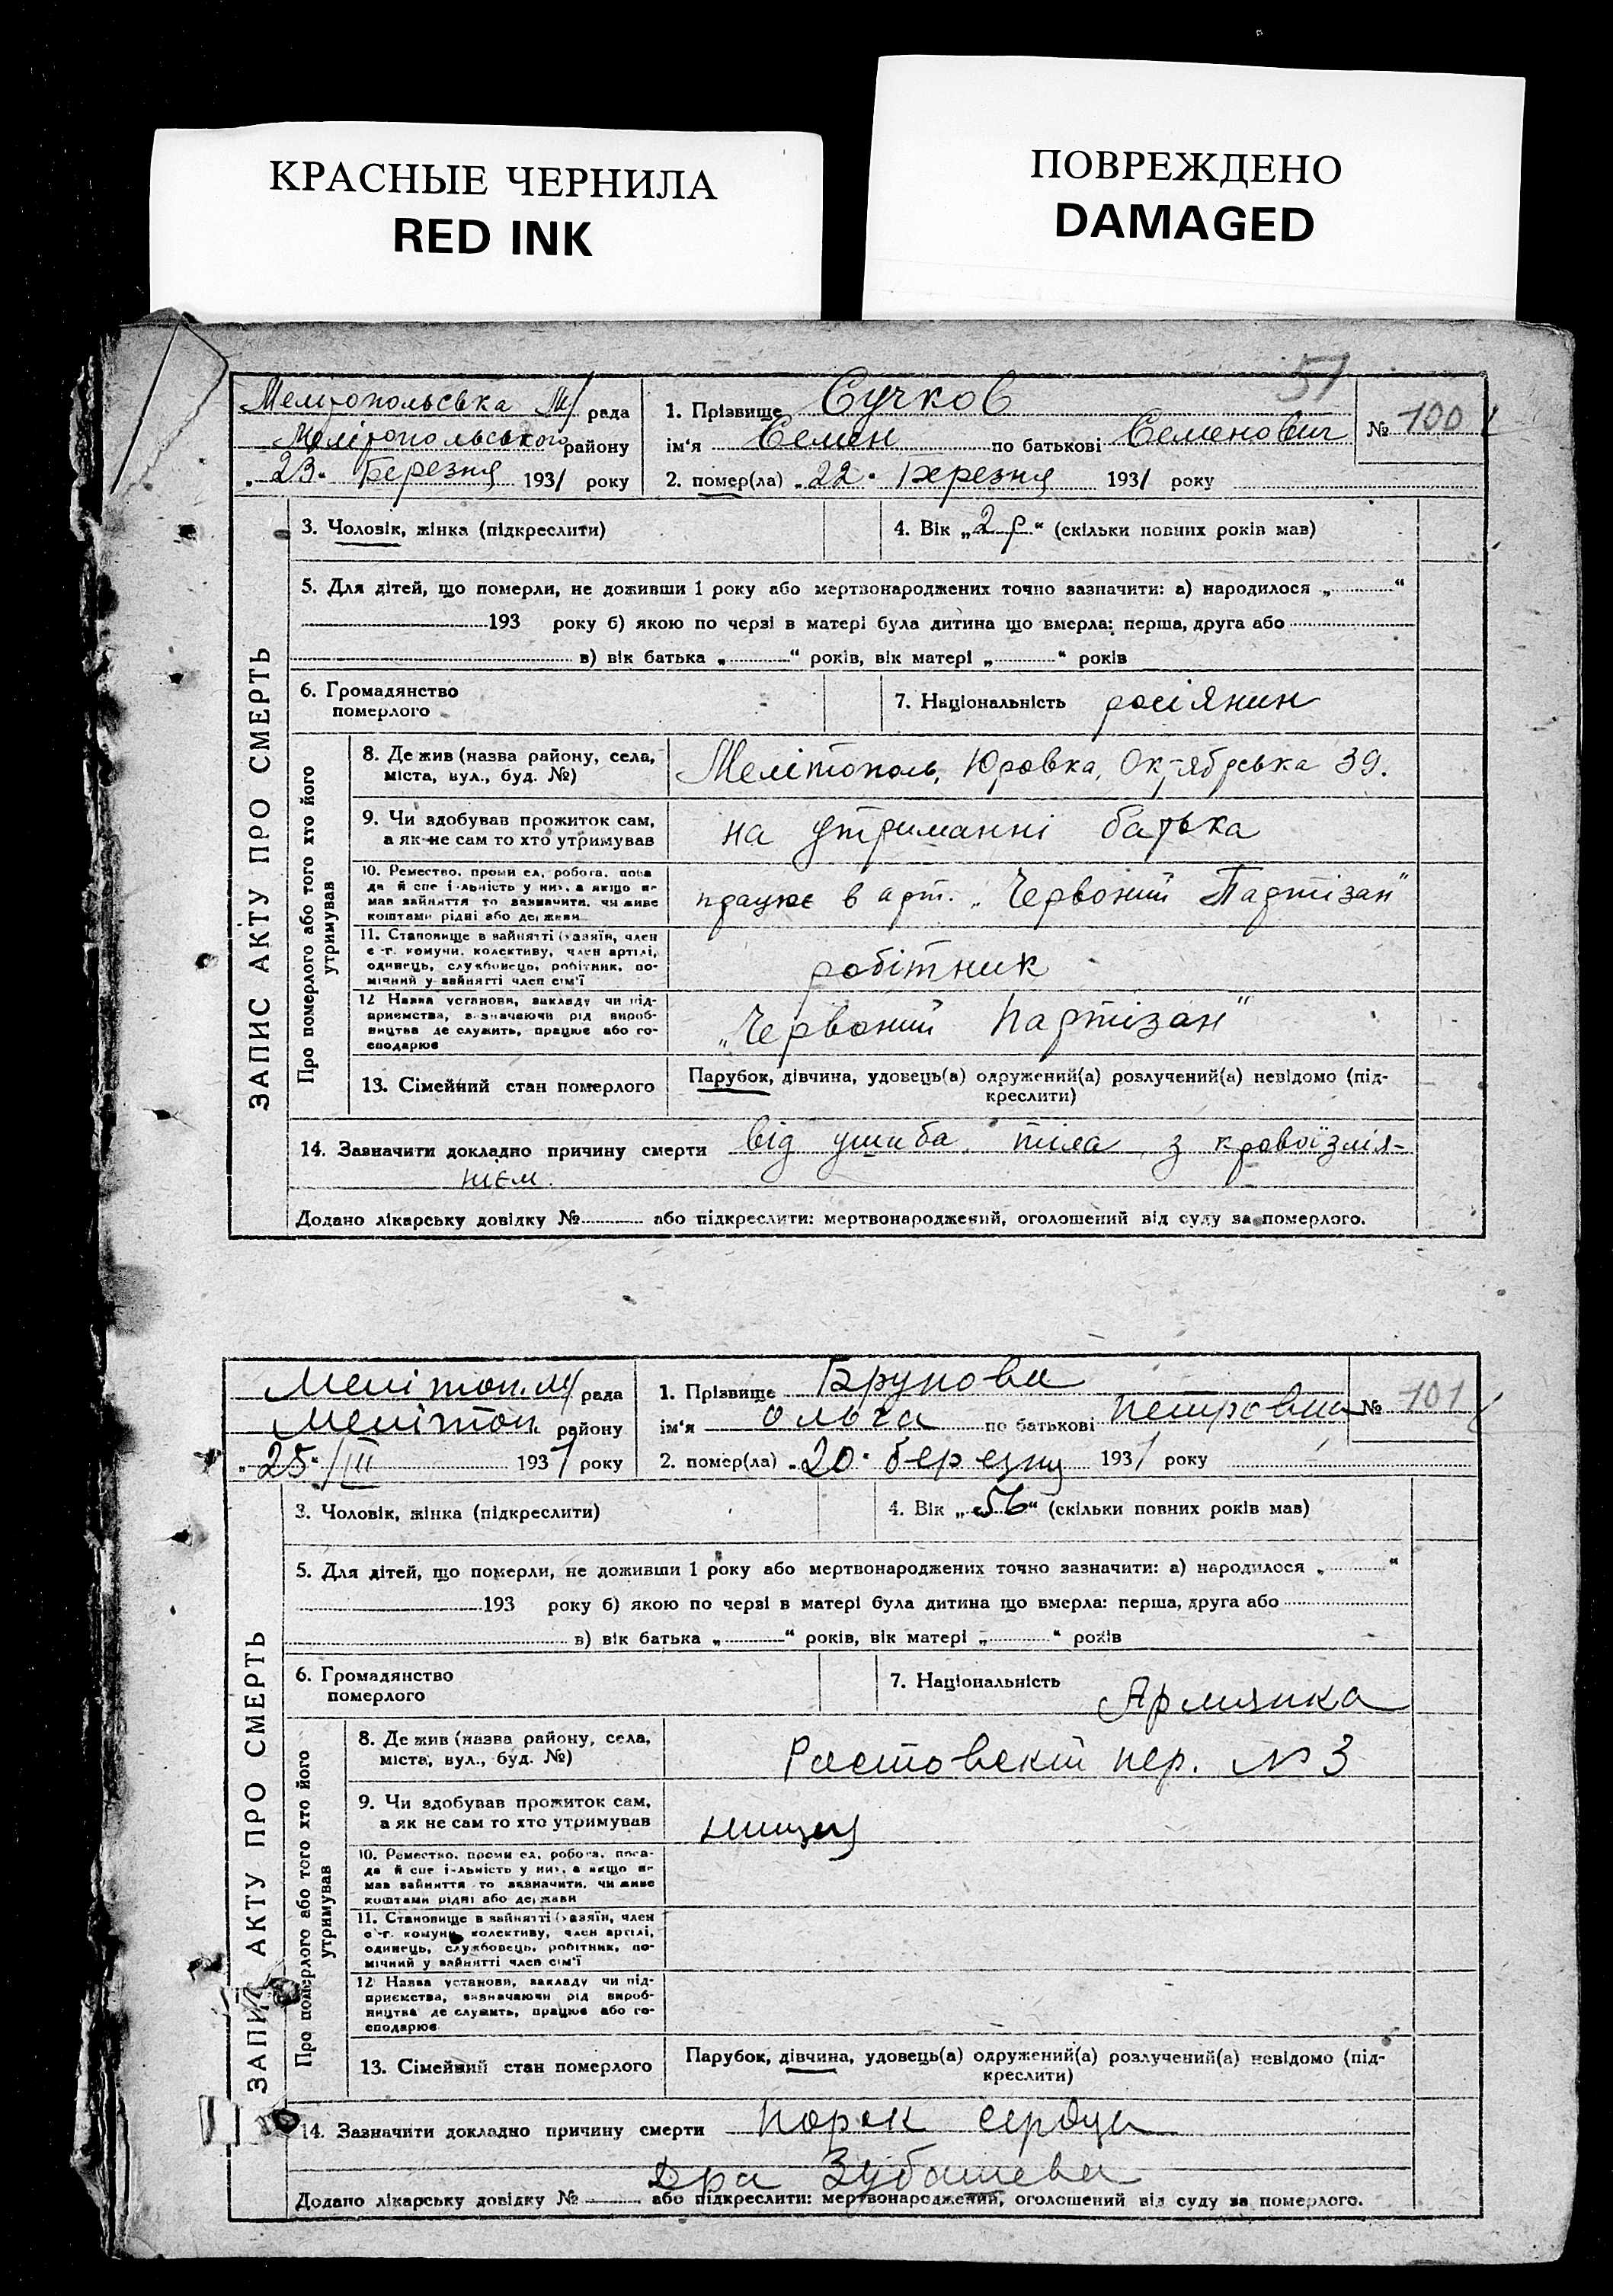 КРАСНЫЕ ЧЕРНИЛА
RED INK
ПОВРЕЖДЕНО
DAMAGED
51
Мелітопольська М/ рада
Мелітопольського району
„23" Березня 1931 року
1. Прізвище Сучков
ім'я Семен по батькові Семенович
№ 100
2. помер(ла) „22" Березня 1931 року
ЗАПИС АКТУ ПРО СМЕРТЬ
3. Чоловік, жінка (підкреслити)
4. Вік „2 р." (скільки повних років мав)
5. Для дітей, що померли, не доживши 1 року або мертвонароджених точно зазначити: а) народилося „ "
193 року б) якою по черзі в матері була дитина що вмерла: перша, друга або
в) вік батька „ " років, вік матері „ " років
6. Громадянство
померлого
7. Національність росіянин
Про померлого або того хто його
утримував
8. Де жив (назва району, села,
міста, вул., буд. №)
Мелітополь, Юровка, Октябрська 39.
9. Чи здобував прожиток сам,
а як не сам то хто утримував
на утриманні батька
10. Ремество, промисел, робота, поса
да й спеціяльність у них, а якщо не
мав зайняття то зазначити, чи живе
коштами рідні або держави
працює в арт. „Червоний Партізан"
11. Становище в зайнятті (хазяїн, член
с.-г. комуни, колективу, член артілі,
одинець, службовець, робітник, по-
мічний у зайнятті член сім'ї
робітник
12 Назва установи, закладу чи під-
приємства, визначаючи рід вироб-
ництва де служить, працює або го-
сподарює
„Червоний Партізан"
13. Сімейний стан померлого
Парубок, дівчина, удовець(а) одружений(а) розлучений(а) невідомо (під-
креслити)
14. Зазначити докладно причину смерти від ушиба тіла з кровоізлія-
нієм.
Додано лікарську довідку № або підкреслити: мертвонароджений, оголошений від суду за померлого.
Мелітоп. М/ рада
Мелітоп. району
„25" /III 1931 року
1. Прізвище
ім'я Ольга по батькові Петровна
№ 101
2. помер(ла) „20" березня 1931 року
ЗАПИС АКТУ ПРО СМЕРТЬ
3. Чоловік, жінка (підкреслити)
4. Вік „56" (скільки повних років мав)
5. Для дітей, що померли, не доживши 1 року або мертвонароджених точно зазначити: а) народилося „ "
193 року б) якою по черзі в матері була дитина що вмерла: перша, друга або
в) вік батька „ " років, вік матері „ " років
6. Громадянство
померлого
7. Національність Армянка
Про померлого або того хто його
утримував
8. Де жив (назва району, села,
міста, вул., буд. №)
Ростовскій пер. № 3
9. Чи здобував прожиток сам,
а як не сам то хто утримував
10. Ремество, промисел, робота, поса-
да й спеціяльність у них, а якщо не
мав зайняття то зазначити, чи живе
коштами рідні або держави
11. Становище в зайнятті (хазяїн, член
с.-г. комуни, колективу, член артілі,
одинець, службовець, робітник, по-
мічний у зайнятті член сім'ї
12 Назва установи, закладу чи під-
приємства, визначаючи рід вироб-
ництва де служить, працює або го-
сподарює
13. Сімейний стан померлого
Парубок, дівчина, удовець(а) одружений(а) розлучений(а) невідомо (під-
креслити)
14. Зазначити докладно причину смерти Порок сердца
Д-ра Зубашева
Додано лікарську довідку № або підкреслити: мертвонароджений, оголошений від суду за померлого.